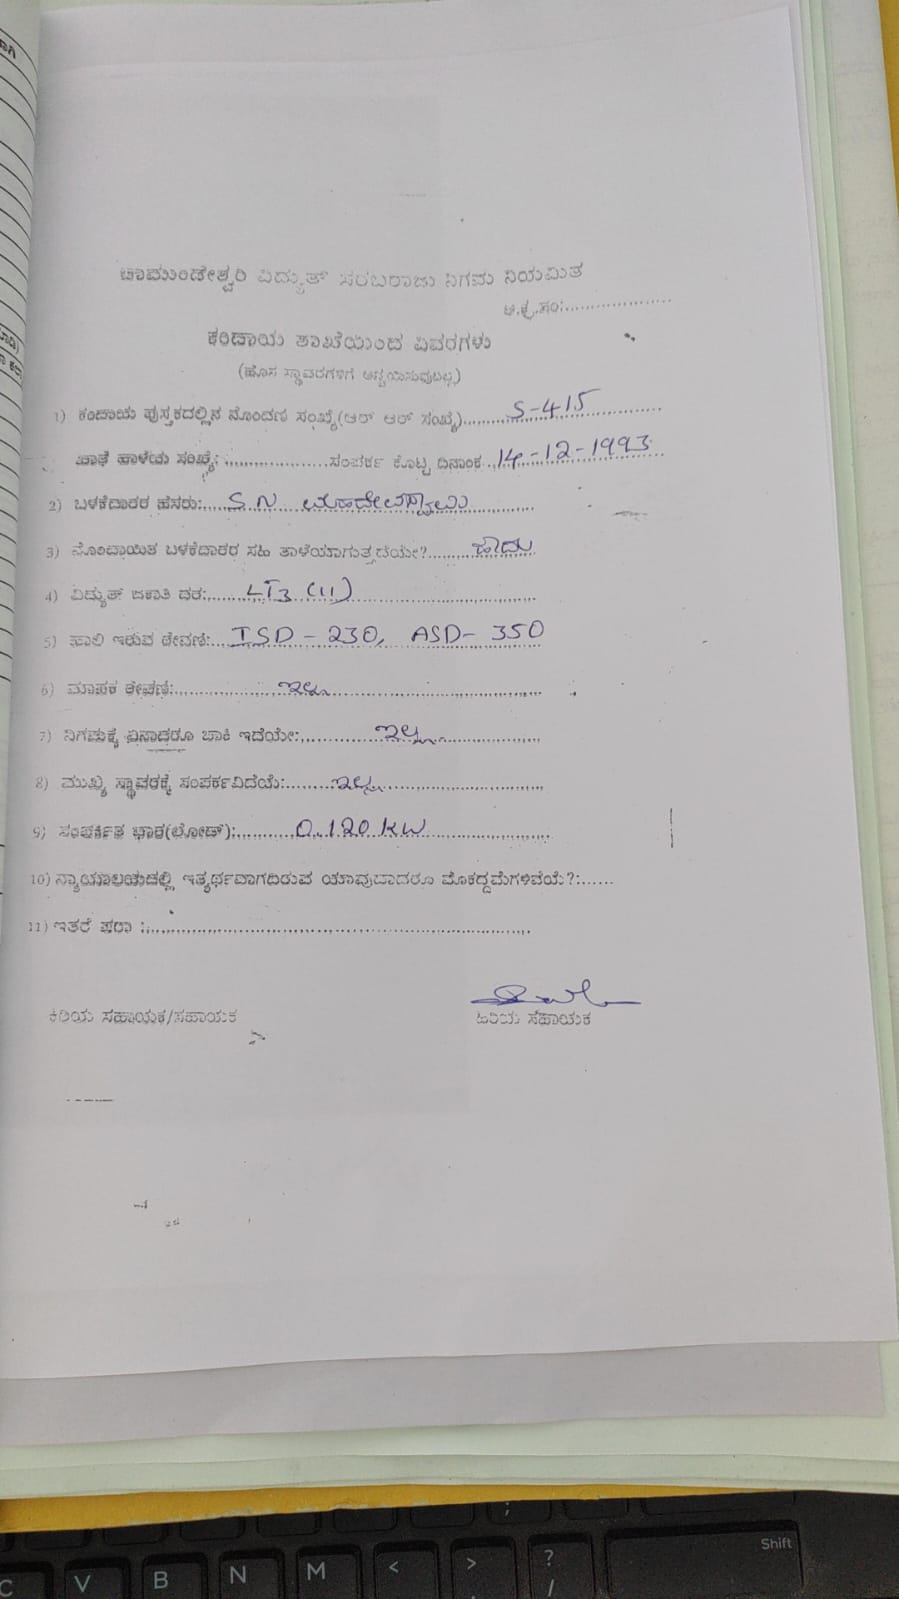 ಚಾಮುಂಡೇಶ್ವರಿ ವಿದ್ಯುತ್ ಸರಬರಾಜು ನಿಗಮ ನಿಯಮಿತ
ಅ.ಕ್ರ.ಸಂ:.....................
ಕಂದಾಯ ಶಾಖೆಯಿಂದ ವಿವರಗಳು
(ಹೊಸ ಸ್ಥಾವರಗಳಿಗೆ ಅನ್ವಯಿಸುವುದಿಲ್ಲ)
1) ಕಂದಾಯ ಪುಸ್ತಕದಲ್ಲಿನ ನೊಂದಣಿ ಸಂಖ್ಯೆ(ಆರ್ ಆರ್ ಸಂಖ್ಯೆ)......S-415
ಖಾತೆ ಹಾಳೆಯ ಸಂಖ್ಯೆ:....................ಸಂಪರ್ಕ ಕೊಟ್ಟ ದಿನಾಂಕ..14-12-1993
2) ಬಳಕೆದಾರರ ಹೆಸರು:.....S.N ಮಹದೇವಸ್ವಾಮಿ
3) ನೊಂದಾಯಿತ ಬಳಕೆದಾರರ ಸಹಿ ತಾಳೆಯಾಗುತ್ತದೆಯೇ?........ಹೌದು
4) ವಿದ್ಯುತ್ ಜಕಾತಿ ದರ:.......LT3 (11)
5) ಹಾಲಿ ಇರುವ ಠೇವಣಿ:...ISD - 230, ASD- 350
6) ಮಾಪಕ ಠೇವಣಿ:....................ಇಲ್ಲ
7) ನಿಗಮಕ್ಕೆ ಏನಾದರೂ ಬಾಕಿ ಇದೆಯೇ:..............ಇಲ್ಲ
8) ಮುಖ್ಯ ಸ್ಥಾವರಕ್ಕೆ ಸಂಪರ್ಕವಿದೆಯೆ:.........ಇಲ್ಲ
9) ಸಂಪರ್ಕಿತ ಭಾರ(ಲೋಡ್):...........0.120 KW
10) ನ್ಯಾಯಾಲಯದಲ್ಲಿ ಇತ್ಯರ್ಥವಾಗದಿರುವ ಯಾವುದಾದರೂ ಮೊಕದ್ದಮೆಗಳಿವೆಯೆ?:......
11) ಇತರೆ ಷರಾ :......................................................
ಕಿರಿಯ ಸಹಾಯಕ/ಸಹಾಯಕ
ಹಿರಿಯ ಸಹಾಯಕ
Shift
C V B N M < > ? /